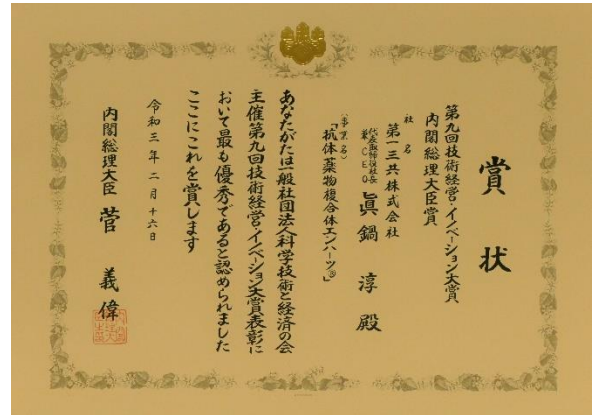 賞状
第九回技術経営・イノベーション大賞
内閣総理大臣賞
社名
第一三共株式会社
代表取締役社長
兼CEO
眞鍋 淳 殿
(事業名)
「抗体薬物複合体エンハーツ®」
あなたがたは一般社団法人科学技術と経済の会
主催第九回技術経営・イノベーション大賞表彰に
おいて最も優秀であると認められました
ここにこれを賞します
令和三年二月十六日
内閣総理大臣 菅 義偉